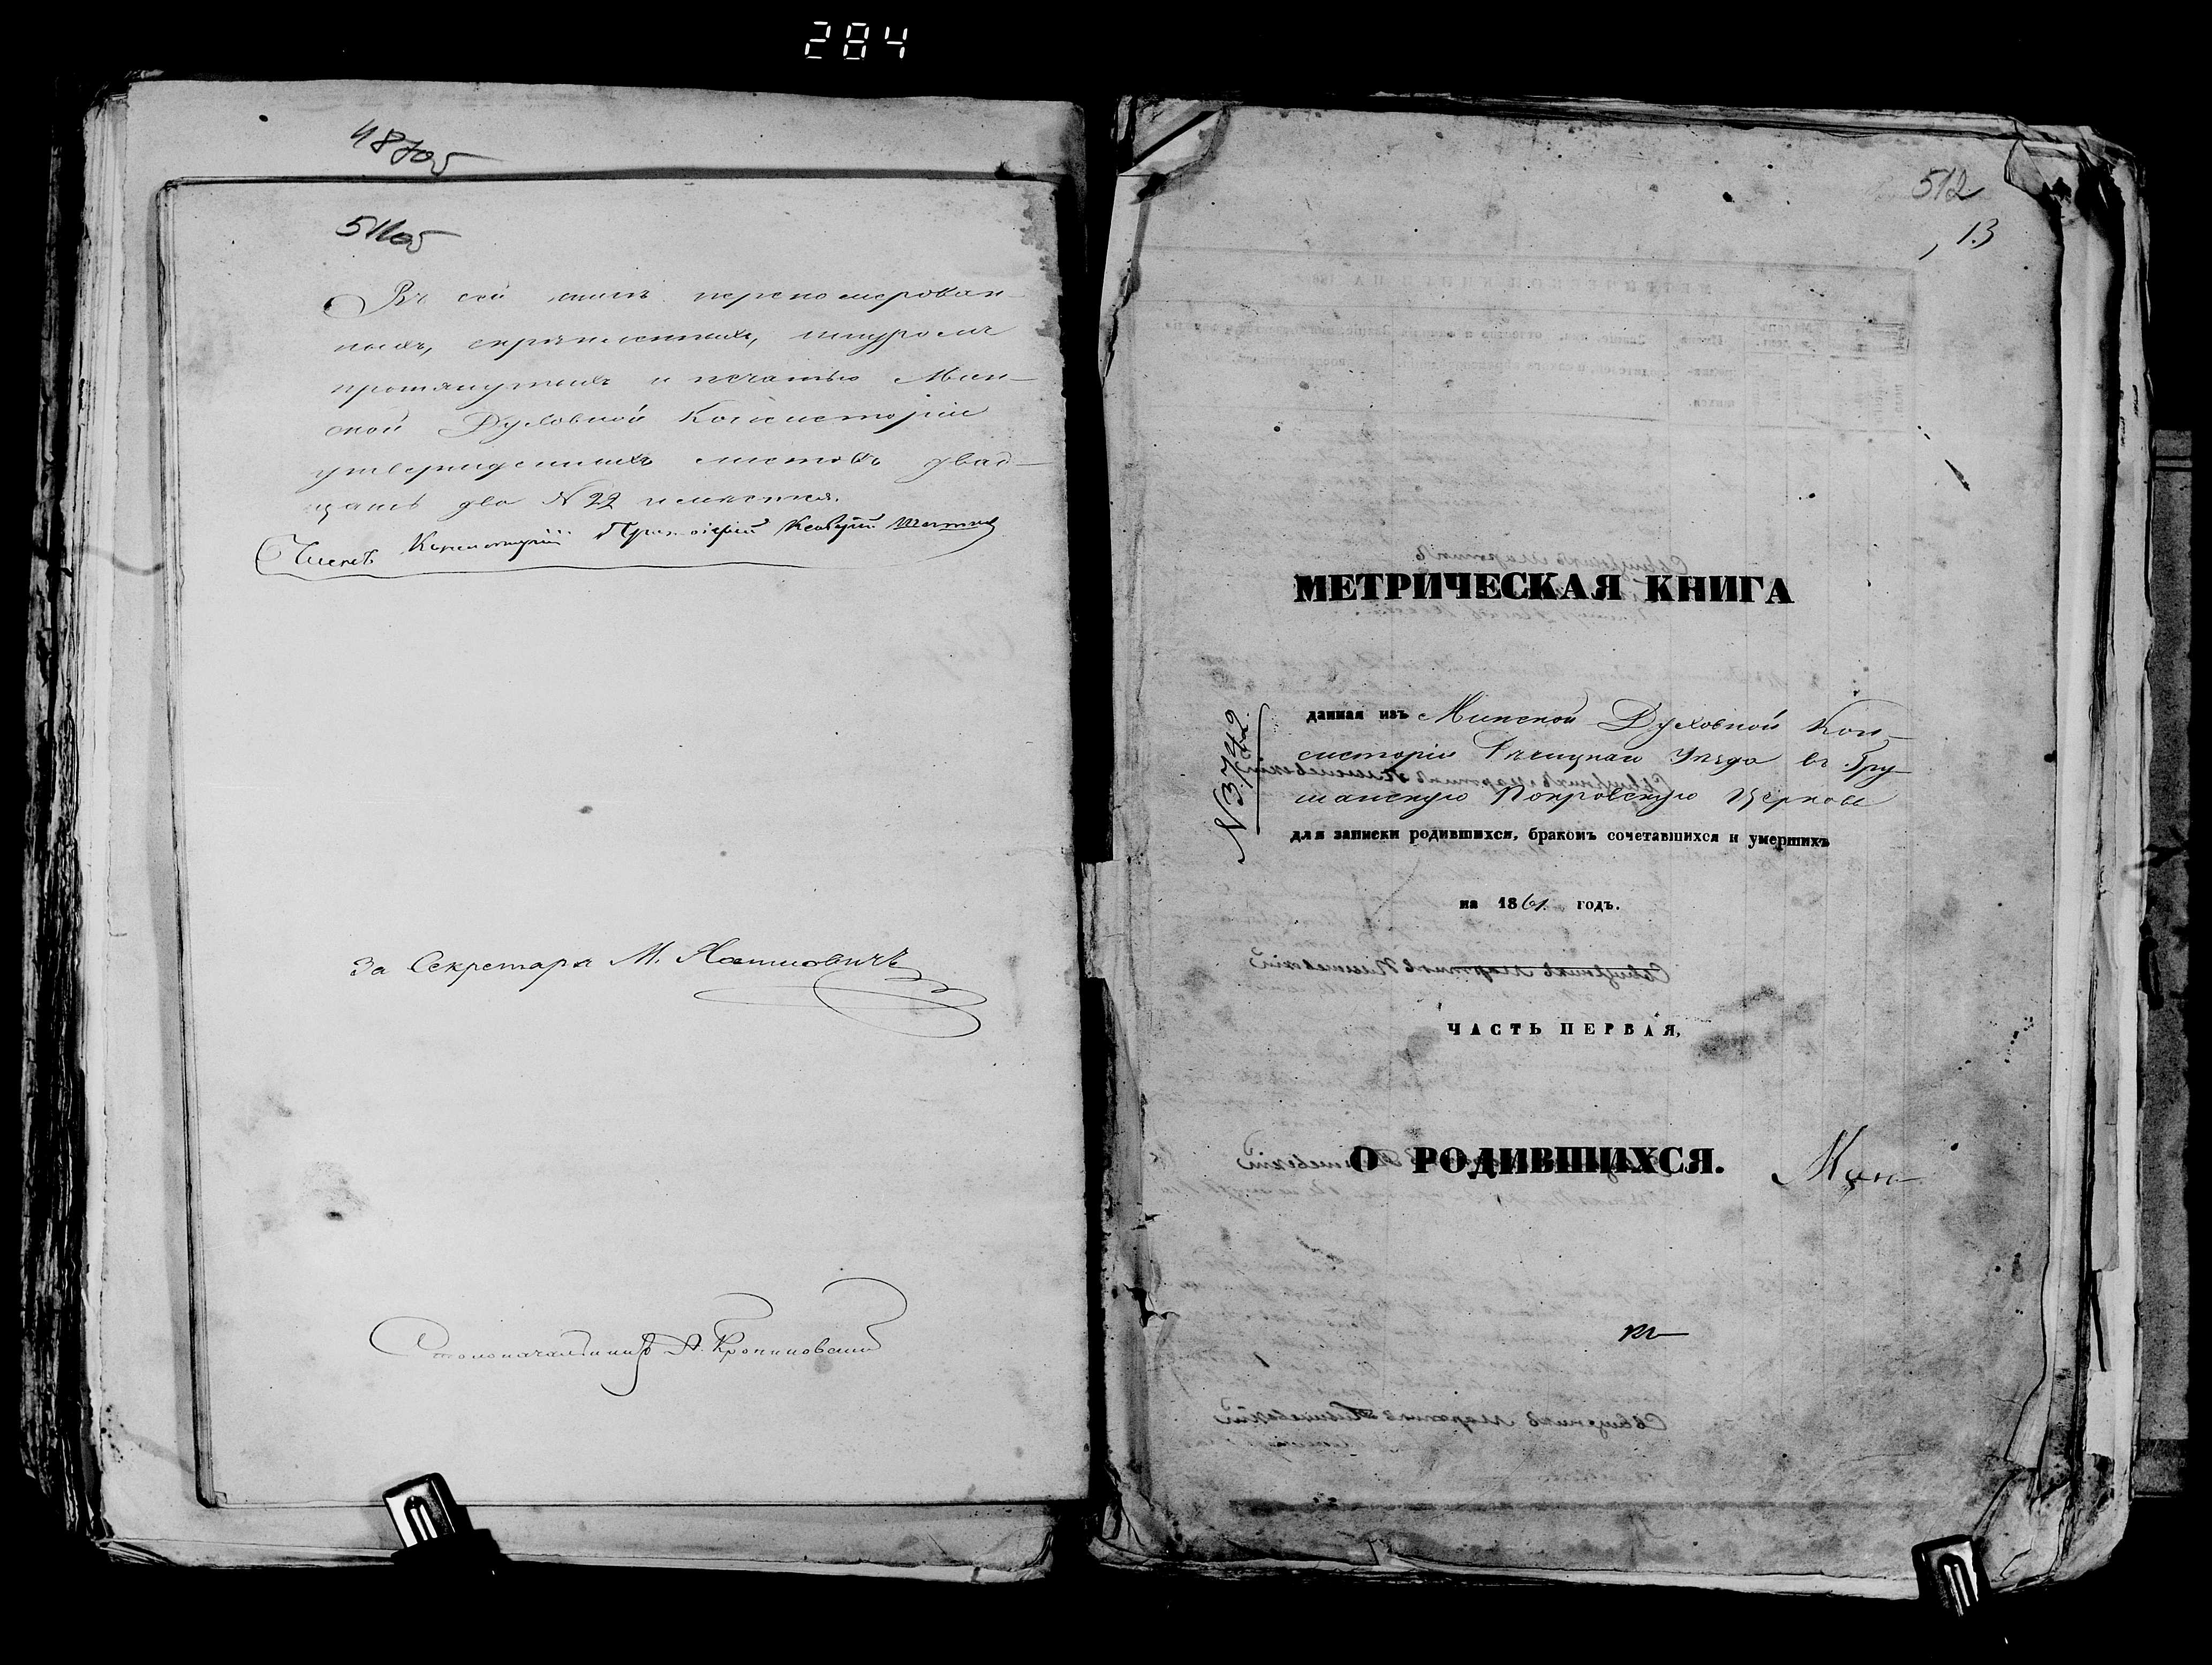 284
487об
511об
Въ сей книгѣ перенумерован-
ныхъ, скрѣпленныхъ, шнуромъ
протянутыхъ и печатью Мин-
ской Духовной Консисторіи
утвержденныхъ листовъ двад-
цать два № 22 имѣется.
Членъ Консисторіи Протоіерей
За Секретаря М.
Столоначальникъ А.
512
13
МЕТРИЧЕСКАЯ КНИГА
№ 3742.
данная изъ Минской Духовной Кон-
систоріи Рѣчицкаго Уѣзда въ
Покровскую Церковь
для записки родившихся, бракомъ сочетавшихся и умершихъ
на 1861 годъ.
ЧАСТЬ ПЕРВАЯ,
О РОДИВШИХСЯ.
Мин